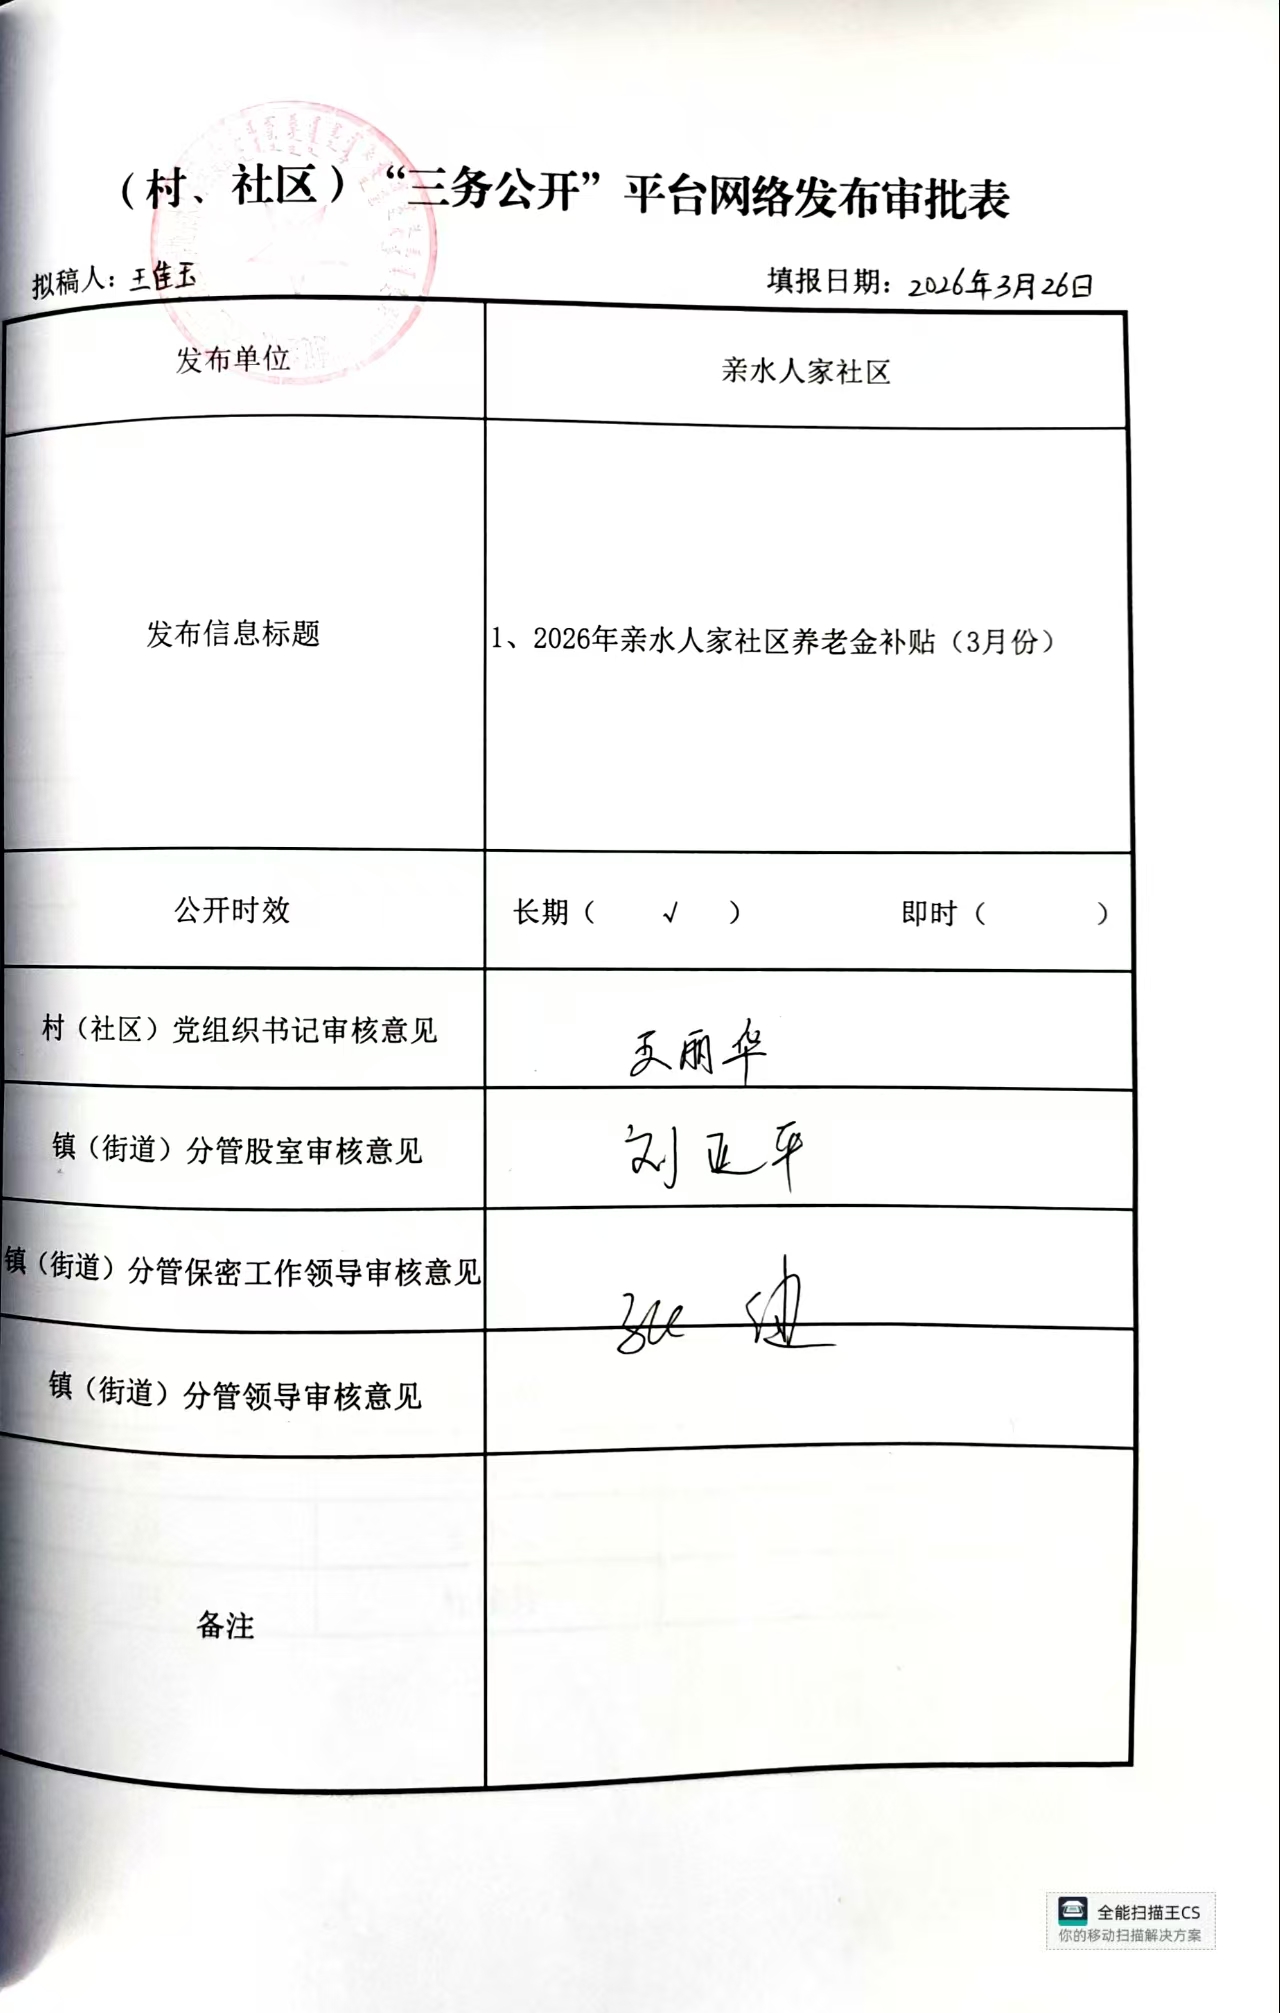 （村、社区）“三务公开”平台网络发布审批表
拟稿人：王佳玉 填报日期：2026年3月26日
发布单位 亲水人家社区
发布信息标题 1、2026年亲水人家社区养老金补贴（3月份）
公开时效 长期（ √ ） 即时（ ）
村（社区）党组织书记审核意见 王丽华
镇（街道）分管股室审核意见 刘亚平
镇（街道）分管保密工作领导审核意见
镇（街道）分管领导审核意见
备注
全能扫描王CS
你的移动扫描解决方案